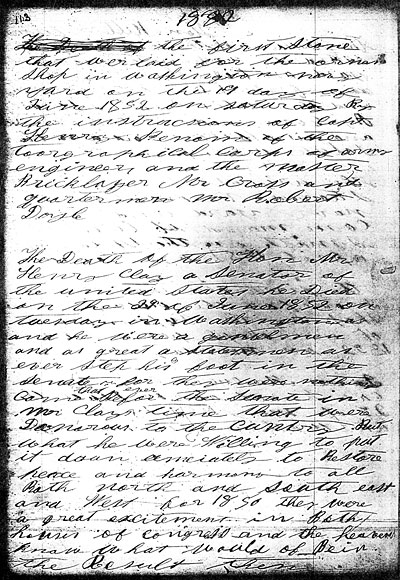 113
1852
The Death of the first Stone
that wer laid for the
Shop in Washington navy
yard on the 19 day of
June 1852 on saturday By
the instructions of Capt
Henry of the
topographical Corps of army
engineers and the Master
Bricklayer Mr Cross and
quarterman Mr Robert
Doyle
The Death of the Hon Mr
Henry Clay a Senator of
the united States he Died
on the 29 of June 1852 on
tuesday in Washington
and he were a gentelmen
and as great a statesmen as
ever step his foot in the
senate for they was nothing
Came Befor the Senate in
Mr Clays time that wer
Danarous to the Cuntry But
what he were Willing to put
it down amicately to Restore
peace and harmony to all
Both north and South east
and West for 1850 they were
a great excitement in Both
houses of congress and the heaven
know what would of Bein
the Result then